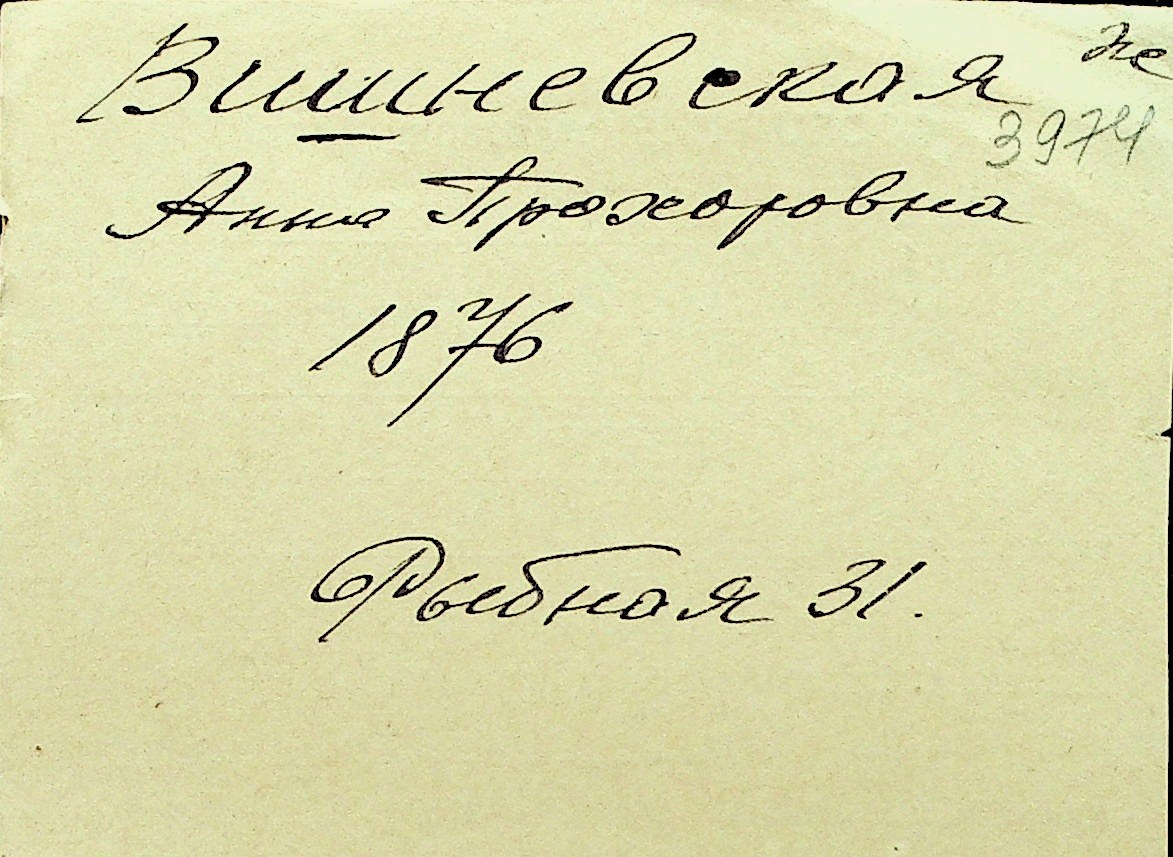 Вишневская
3974
Анна Прохоровна
1876
Рыбная 31.